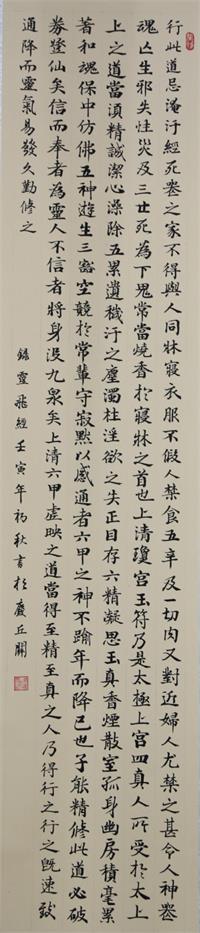 行此道忌淹汙經死喪之家不得與人同牀寢衣服不假人禁食五辛及一切肉又對近婦人尤禁之甚令人神喪
魂亡生邪失性災及三世死為下鬼常當燒香於寢牀之首也上清瓊宮玉符乃是太極上宮四真人所受於太上
上之道當須精誠潔心澡除五累遺穢汙之塵濁杜淫欲之失正目存六精凝思玉真香煙散室孤身幽房積毫累
著和魂保中仿佛五神遊生三豁空競於常輩守寂默以感通者六甲之神不踰年而降己也子能精修此道必破
券登仙矣信而奉者為靈人不信者將身沒九泉矣上清六甲虛映之道當得至精至真之人乃得行之行之既速致
通降而靈氣易發久勤修之
錄靈飛經壬寅年初秋書於丘關